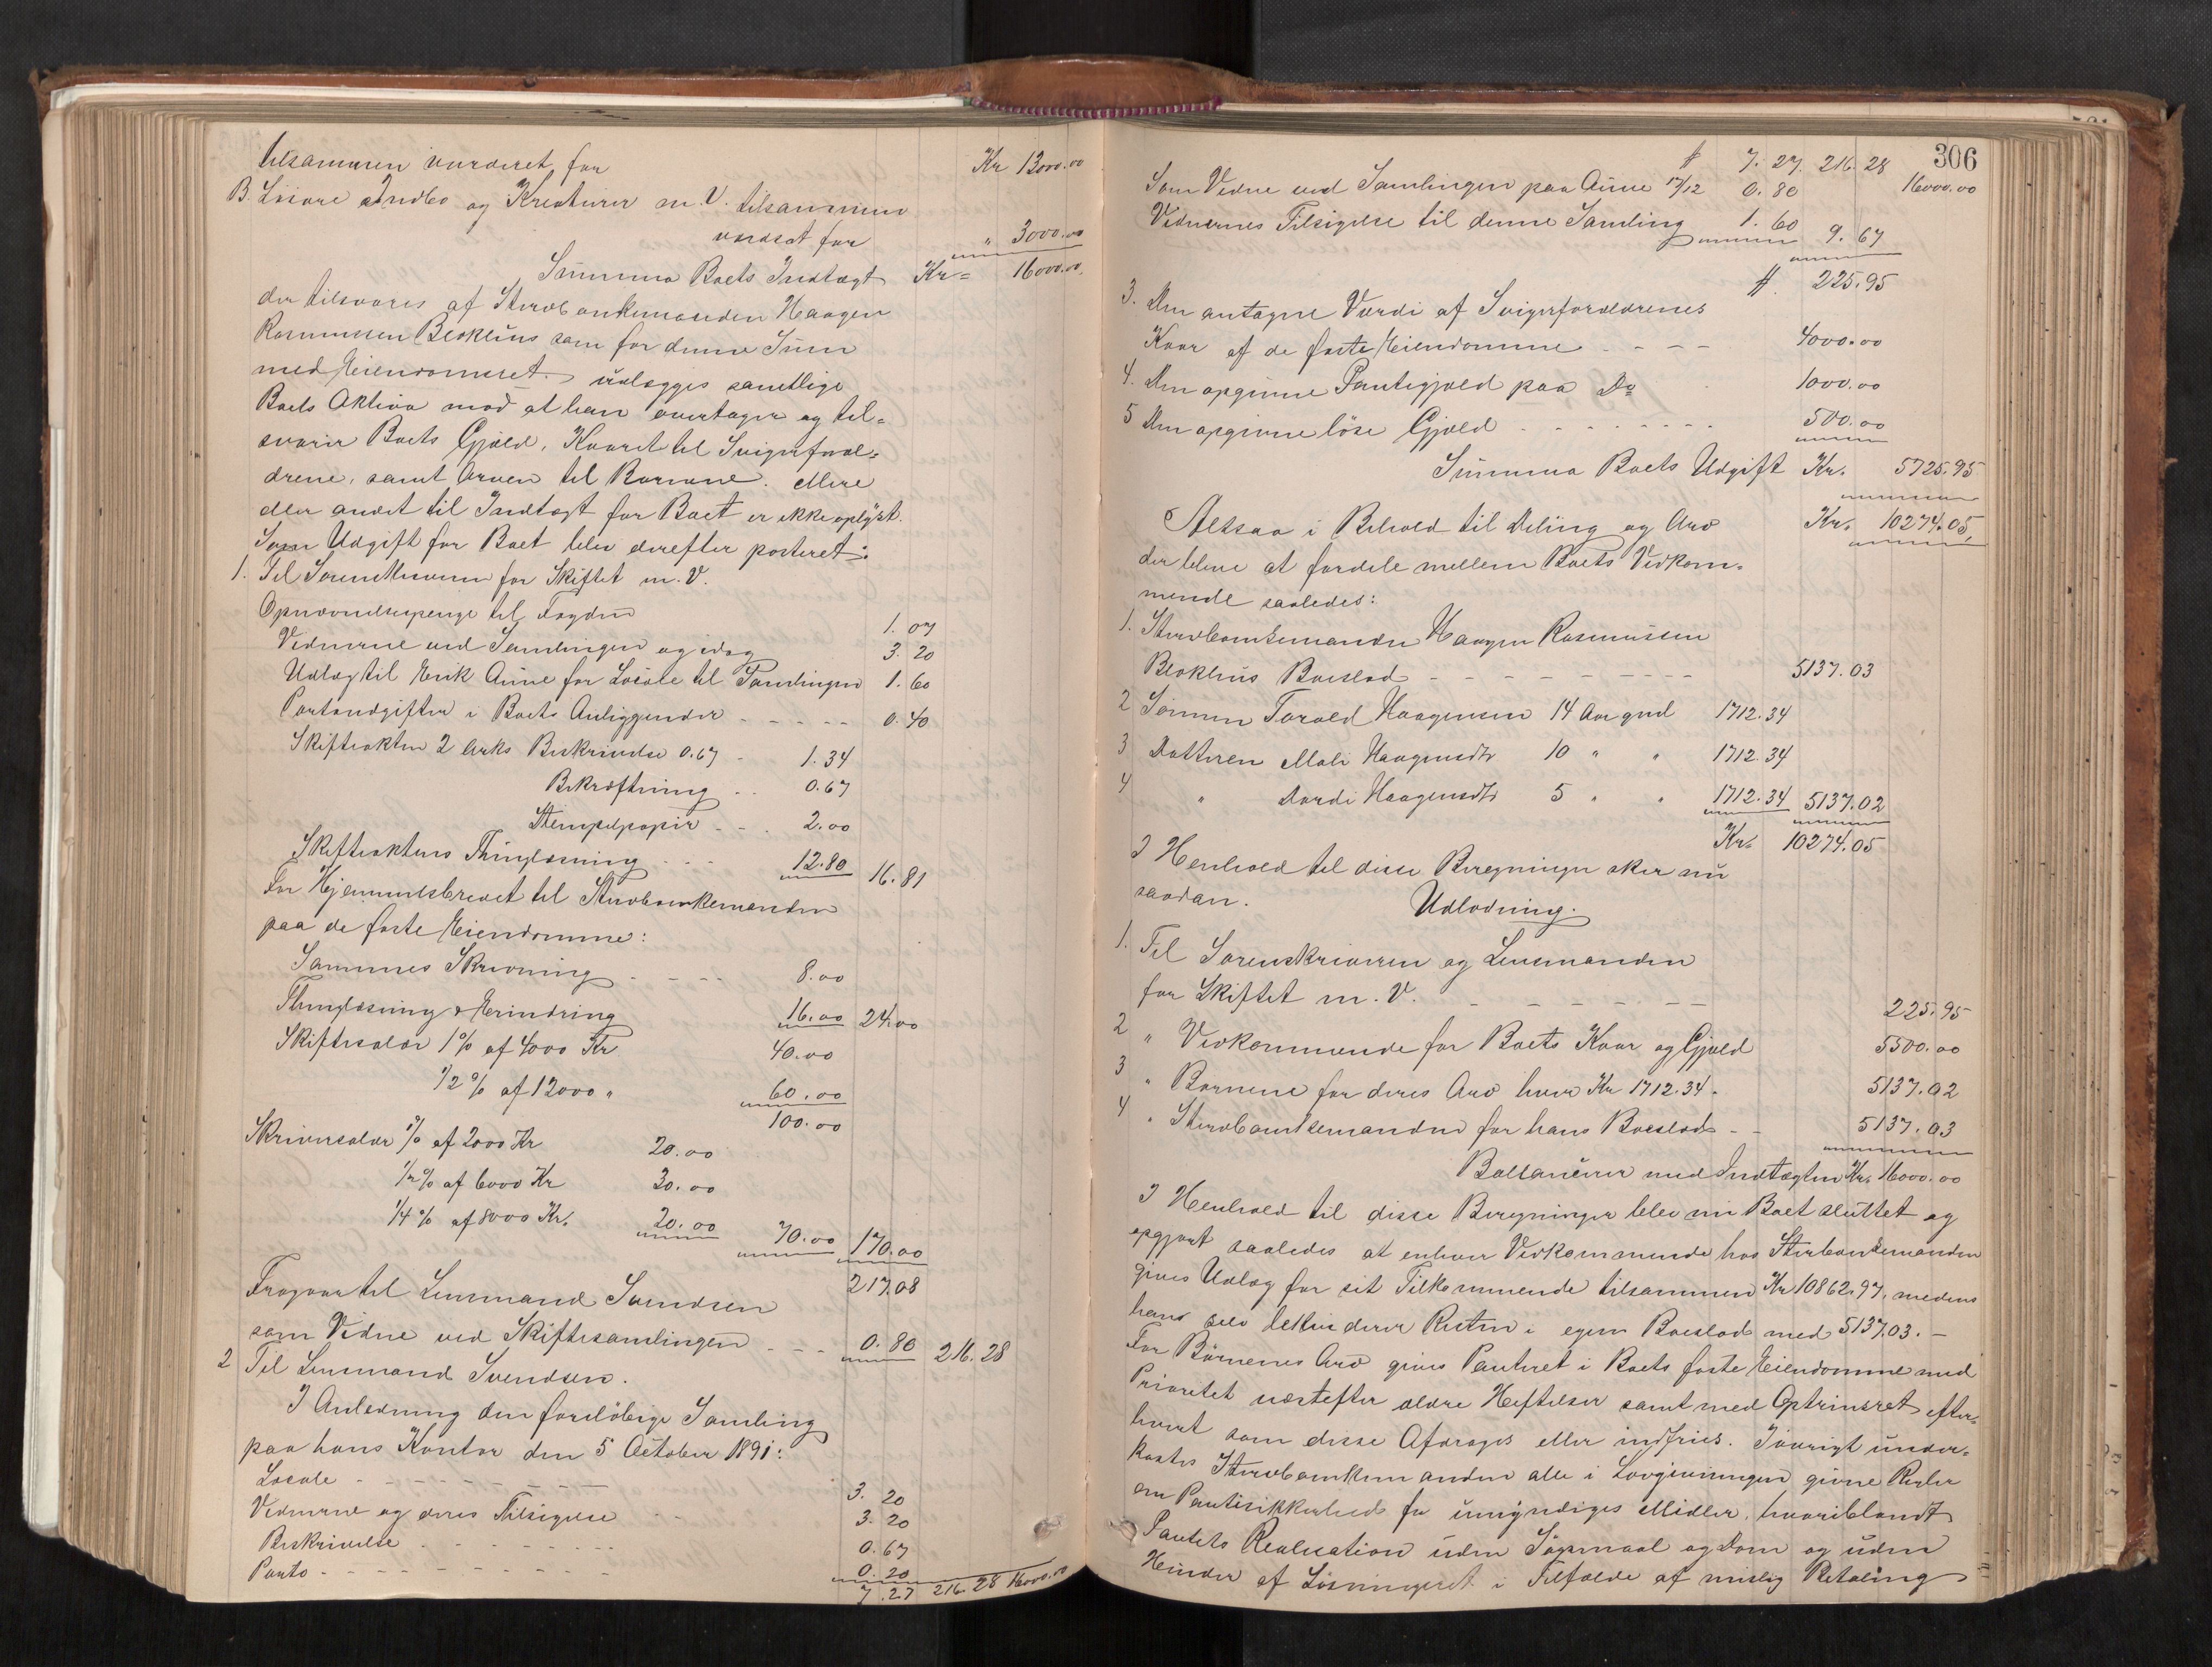 tilsammen vurderet for Kr 13000.00
B. Løsøre Indbo og Kreaturer m.V. tilsammen
vurdert for " 3000.00
Summa Boets Indtægt Kr= 16000.00
der tilsvares af Sterbo enkemanden Haagen
Rasmussen Beoklius som for denne Sum
med Eiendomsret udlægges samtlige
Boets Aktiva mod at han overtager og til=
svarer Boets Gjæld, Kaaret til Svigerforæl=
drene, samt Arven til Børnene. Mere
eller andet til Indtægt for Boet er ikke oplyst.
Som Udgift for Boet blev derefter posteret:
1. Til Sorenskriveren for Skiftet m.V.
Opnævnelsespenge til Fogden 1. 07
Vidnerne ved Samlingen og idag 3. 20
Udlæg til Erik Aune for Locale til Samlingen 1. 60
Portoudgifter i Boets Anliggender - - - - - 0. 40
Skifteakten 2 Arks Beskrivelse 0.67 - 1. 34
Bekræftning - - 0.67
Stempelpapir - - . 2.00
Skifteaktens Thinglæsning - - - 12.80 16. 81
For Hjemmelsbrevet til Sterboenkemanden
paa de faste Eiendomme:
Sammes Skrivning - - - - 8.00
Thinglæsning & Erindring 16.00 24.00
Skiftesalær 1% af 4000 Kr 40.00
1/2 % af 12000 " 60.00
100.00
Skriversalær 1% af 2000 Kr 20.00
1/2% af 6000 Kr 30.00
1/4 % af 8000 Kr. 20.00 70.00 170.00
217.08
Fragaar til Lensmand Svendsen
som Vidne ved Skiftesamlingen - - - 0.80 216.28
2 Til Lensmand Svendsen.
I Anledning den foreløbige Samling
paa hans Kontor den 5 October 1891:
Locale - - - - - - - 3. 20
Vidnerne og deres Tilsigelse - - 3. 20
Beskrivelse - - - - - - - - 0. 67
Porto - - - - - - - - - 0. 20
7.27 216.28 16000.00
306
# 7. 27. 216.28 16000.00
Som Vidne ved Samlingen paa Aune 17/12 0. 80
Vidnernes Tilsigelse til denne Samling 1. 60 9. 67
# 225.95
3. Den antagne Værdi af Svigerforældrenes
Kaar af de faste Eiendomme - - - - 4000.00
4. Den opgivne Pantegjæld paa Do 1000.00
5 Den opgivne løse Gjæld - - - - - - - - 500.00
Summa Boets Udgift Kr. 5725.95
Altsaa i Behold til Deling og Arv Kr. 10274.05,
der bleve at fordele mellem Boets Vedkom=
mende saaledes:
1. Sterboenkemanden Haagen Rasmussen
Beoklius Boeslod - - - - - - - - - 5137.03
2 Sønnen Torald Haagensen 14 Aar gml 1712.34
3 Datteren Mali Haagensdtr 10 " " 1712.34
4 " Dordi Haagensdtr 5 " " 1712.34 5137.02
Kr. 10274.05
I Henhold til disse Beregninger sker nu
saadan.
Udlodning.
1. Til Sorenskriveren og Lensmanden
for Skiftet m.V. - - - - - - - 225.95
2 " Vedkommende for Boets Kaar og Gjæld 5500.00
3 " Børnene for deres Arv hver Kr 1712.34. 5137.02
4 " Sterboenkemanden for hans Boeslod - - 5137.03
Ballancerer med Indtægten Kr. 16000.00
I Henhold til disse Beregninger blev nu Boet sluttet og
opgjort saaledes at enhver Vedkommende hos Sterboenkemanden
gives Udlæg for sit Tilkommende tilsammen Kr 10862.97, medens
han selv beholder Resten i egen Boeslod med 5137.03. -
For Børnenes Arv gives Panteret i Boets faste Eiendomme med
Prioritet næstefter ældre Heftelser samt med Optrinsret efter=
hvert som disse Afdrages eller indfries. Iøvrigt under=
kastes Sterboenkemanden alle i Lovgivningen givne Regler
om Pantesikkerhed for umyndiges Midler, hvoriblandt
Pantets Realisation uden Søgsmaal og Dom og uden
Hinder af Løsningsret i Tilfælde af mislig Betaling